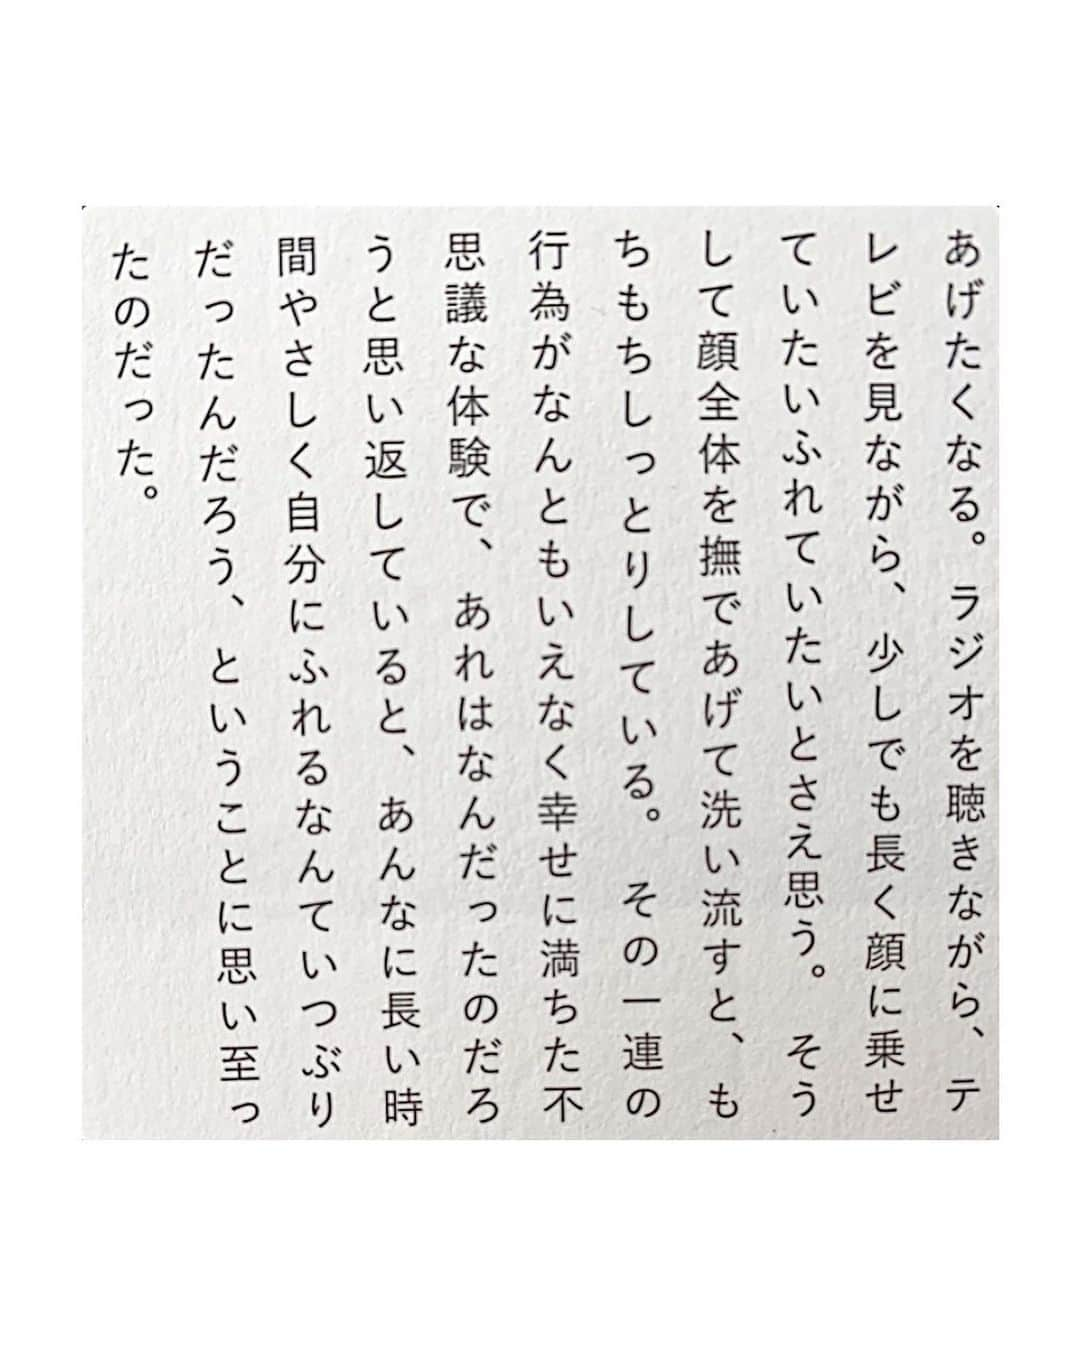 あげたくなる。ラジオを聴きながら、テ
レビを見ながら、少しでも長く顔に乗せ
ていたいふれていたいとさえ思う。そう
して顔全体を撫であげて洗い流すと、も
ちもちしっとりしている。その一連の
行為がなんともいえなく幸せに満ちた不
思議な体験で、あれはなんだったのだろ
うと思い返していると、あんなに長い時
間やさしく自分にふれるなんていつぶり
だったんだろう、ということに思い至っ
たのだった。